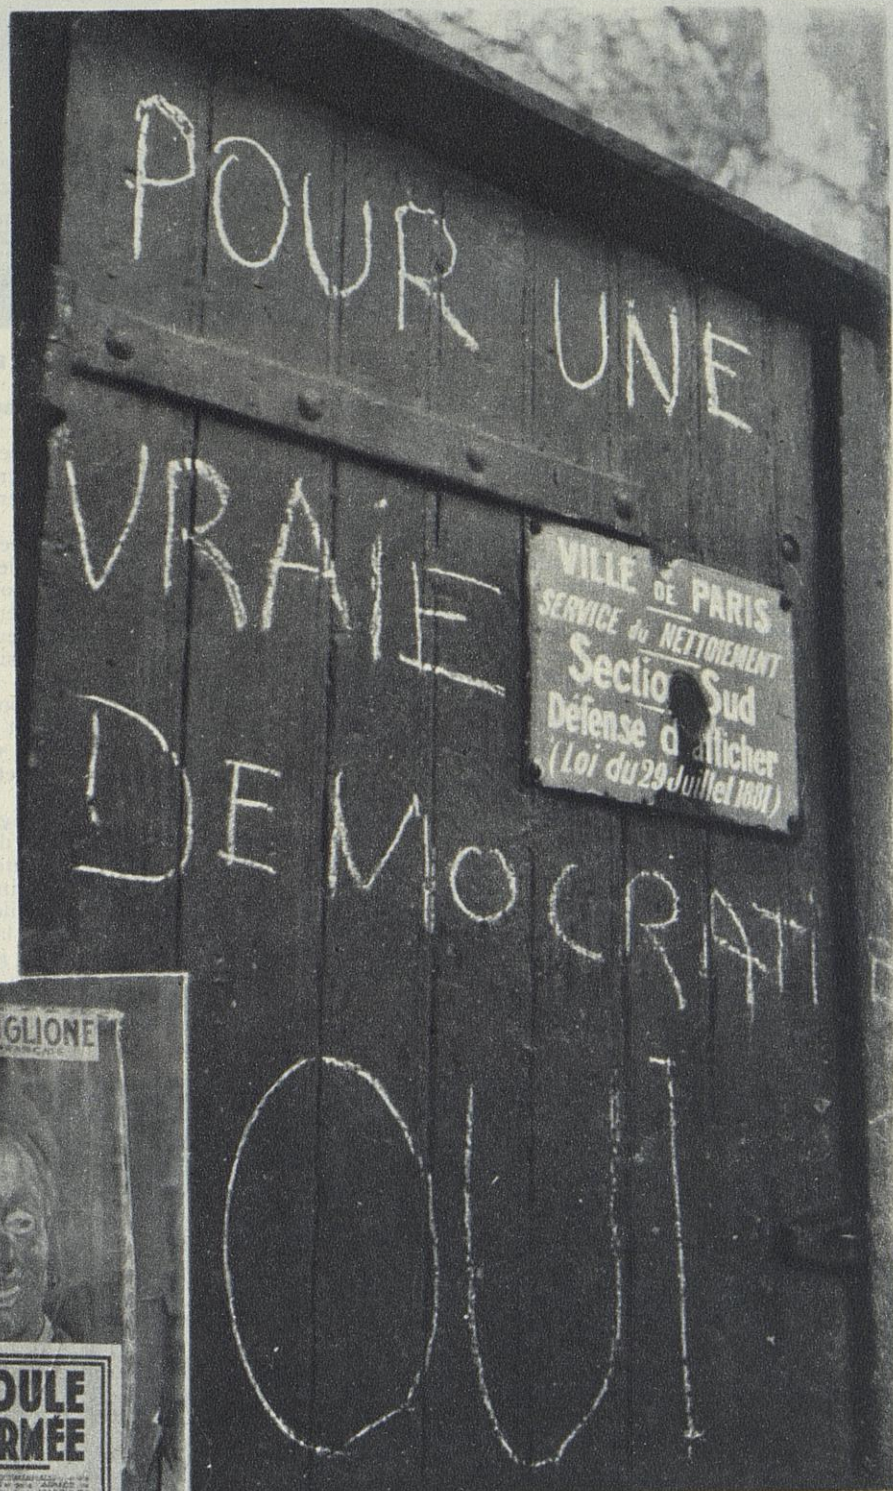 POUR UNE
VRAiE
DEMOCRATI
OUI
VILLE DE PARIS
SERVICE du NETTOIEMENT
Section Sud
Défense d'afficher
(Loi du 29 Juillet 1881)
IGLIONE
OULE
RMÉE